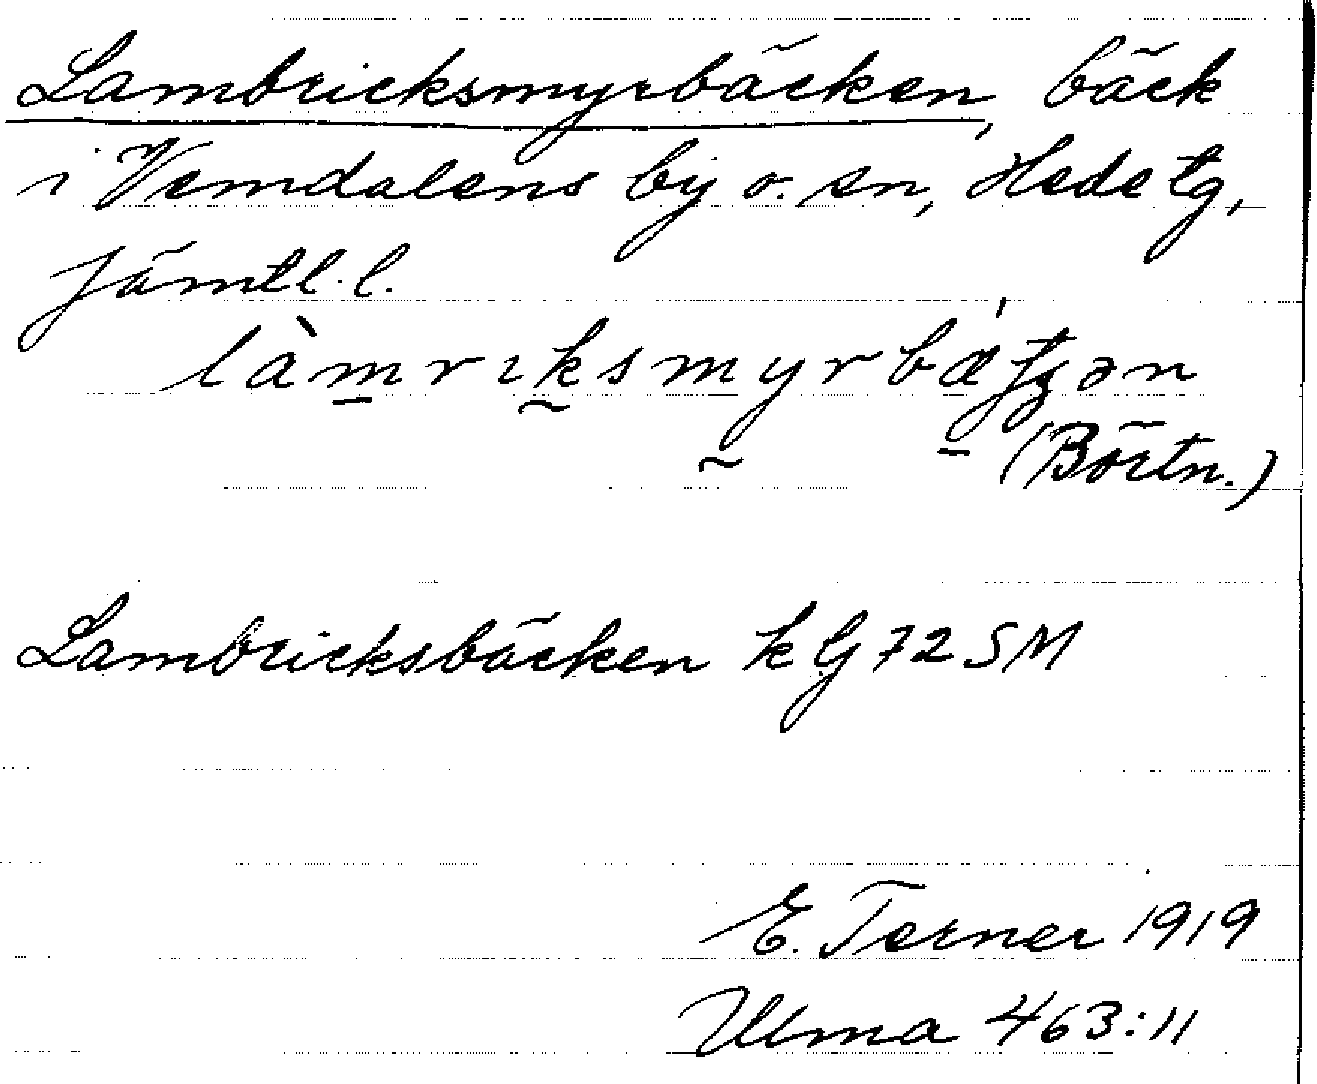 Lambricksmyrbäcken, bäck
i Vemdalens by o. sn, Hede tg,
Jämtl. l.
làmrıksmyrbæ̍tʒən
(Börtn.)
Lambricksbäcken k Gj 72 SM
E. Terner 1919
Ulma 463:11